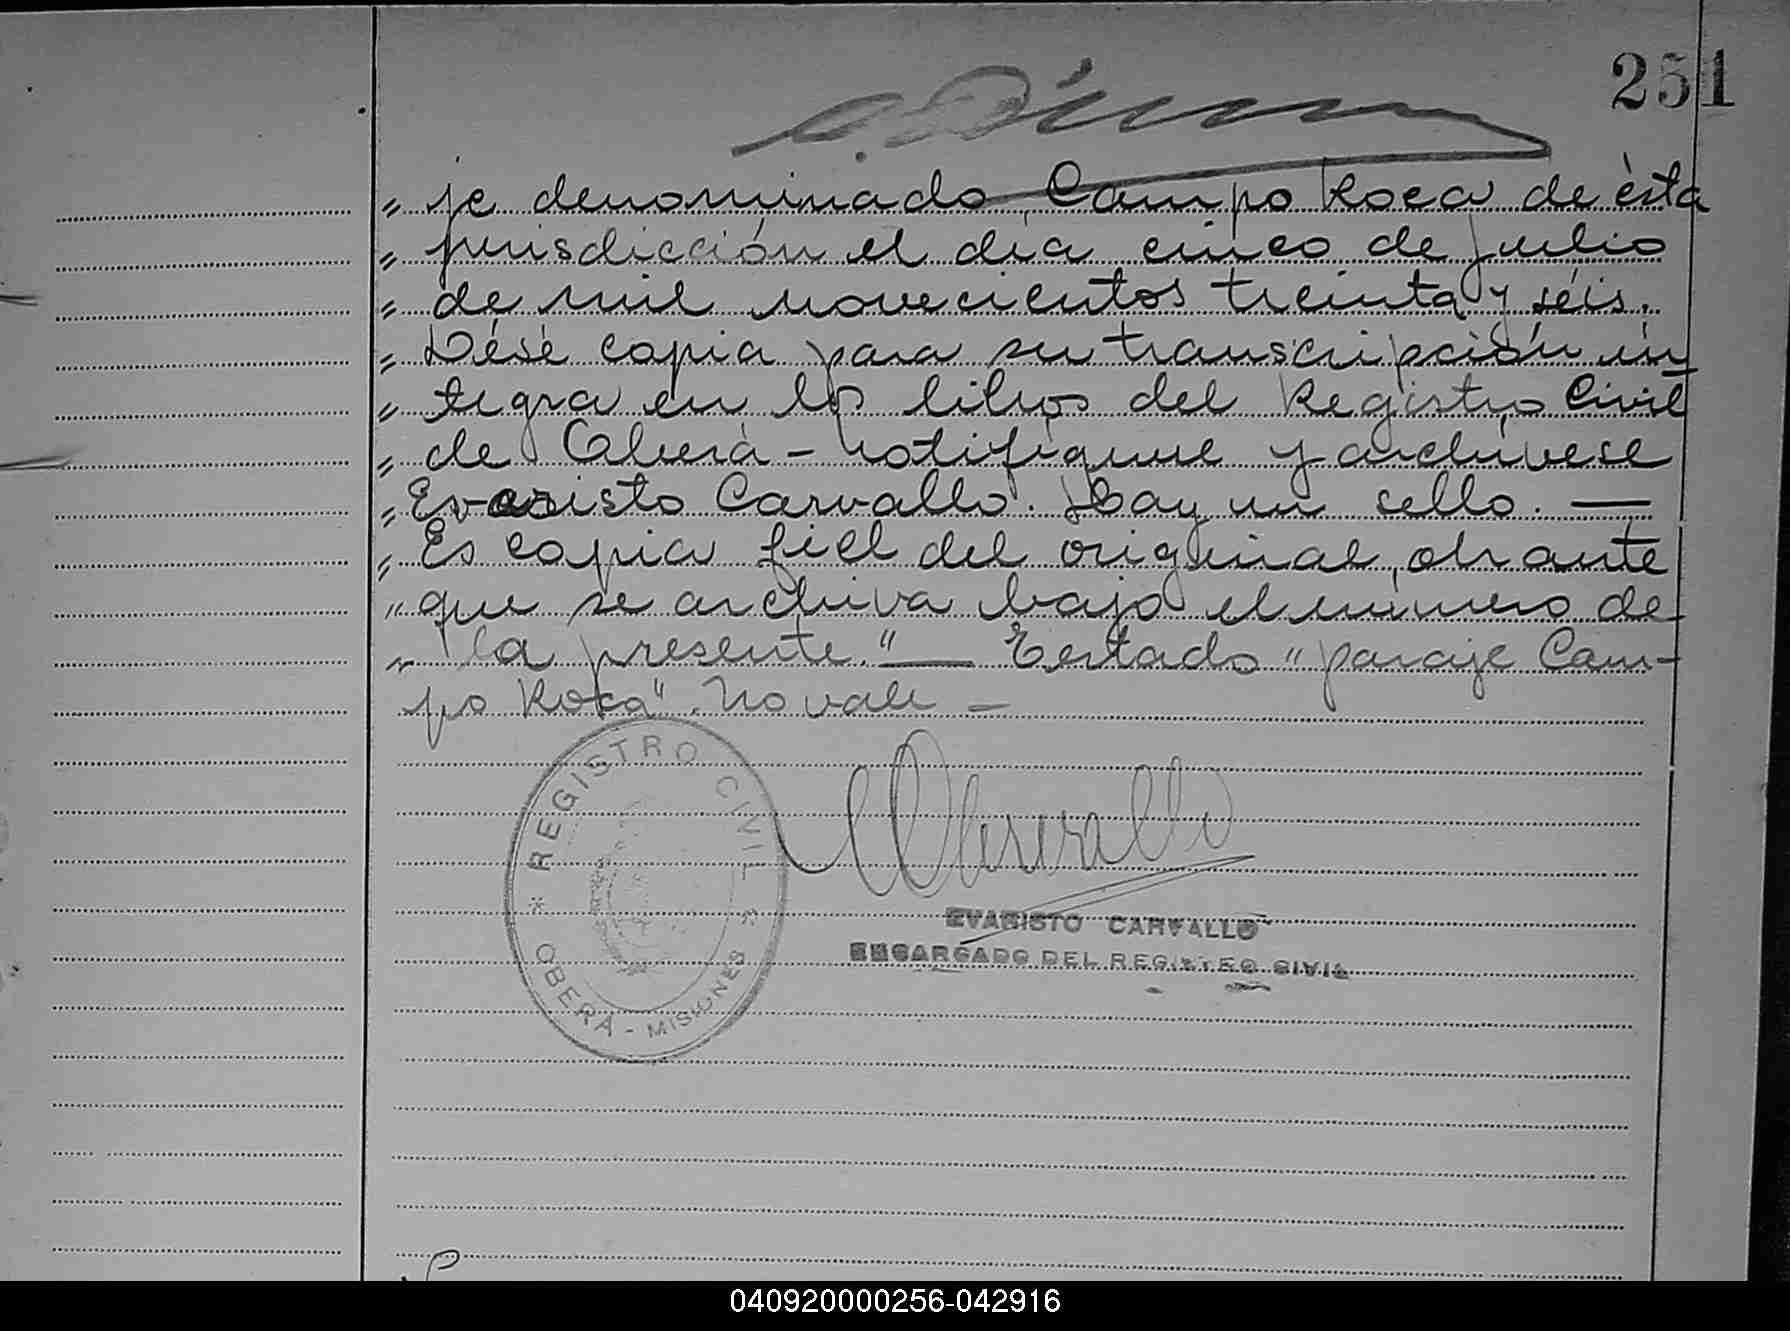 251
„ je denominado Campo Roca de ésta
„ jurisdicción el día cinco de julio
„ de mil novecientos treinta y séis.
„ Désé copia para su transcripción ín
„ tegra en los libros del Registro Civil
„ de Oberá - Notifíquese y archívese
„ Evaristo Carvallo. Hay un sello. —
„ Es copia fiel del original, obrante
„ que se archiva bajo el número de
„ la presente." — Testado "paraje Cam-
po Roca". No vale —
REGISTRO CIVIL
* OBERÁ - MISIONES *
EVARISTO CARVALLO
ENCARGADO DEL REGISTRO CIVIL
040920000256-042916